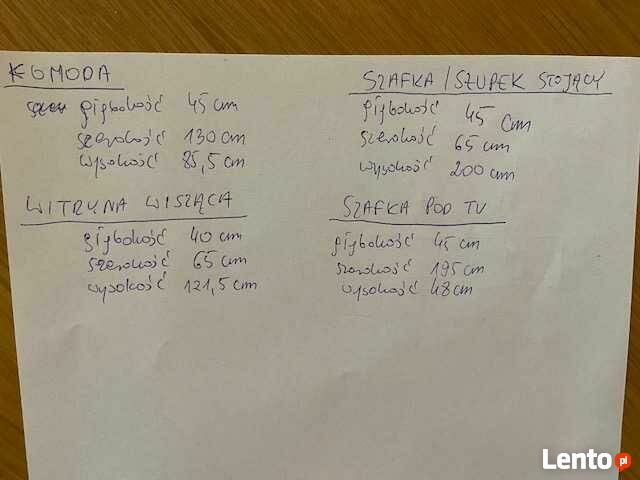 KOMODA
głębokość 45 cm
szerokość 130 cm
wysokość 85,5 cm
SZAFKA / SŁUPEK STOJĄCY
głębokość 45 cm
szerokość 65 cm
wysokość 200 cm
WITRYNA WISZĄCA
głębokość 40 cm
szerokość 65 cm
wysokość 121,5 cm
SZAFKA POD TV
głębokość 45 cm
szerokość 195 cm
wysokość 48 cm
Lento.pl